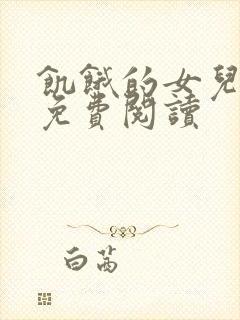 飢餓的女兒
免費閱讀
白茜